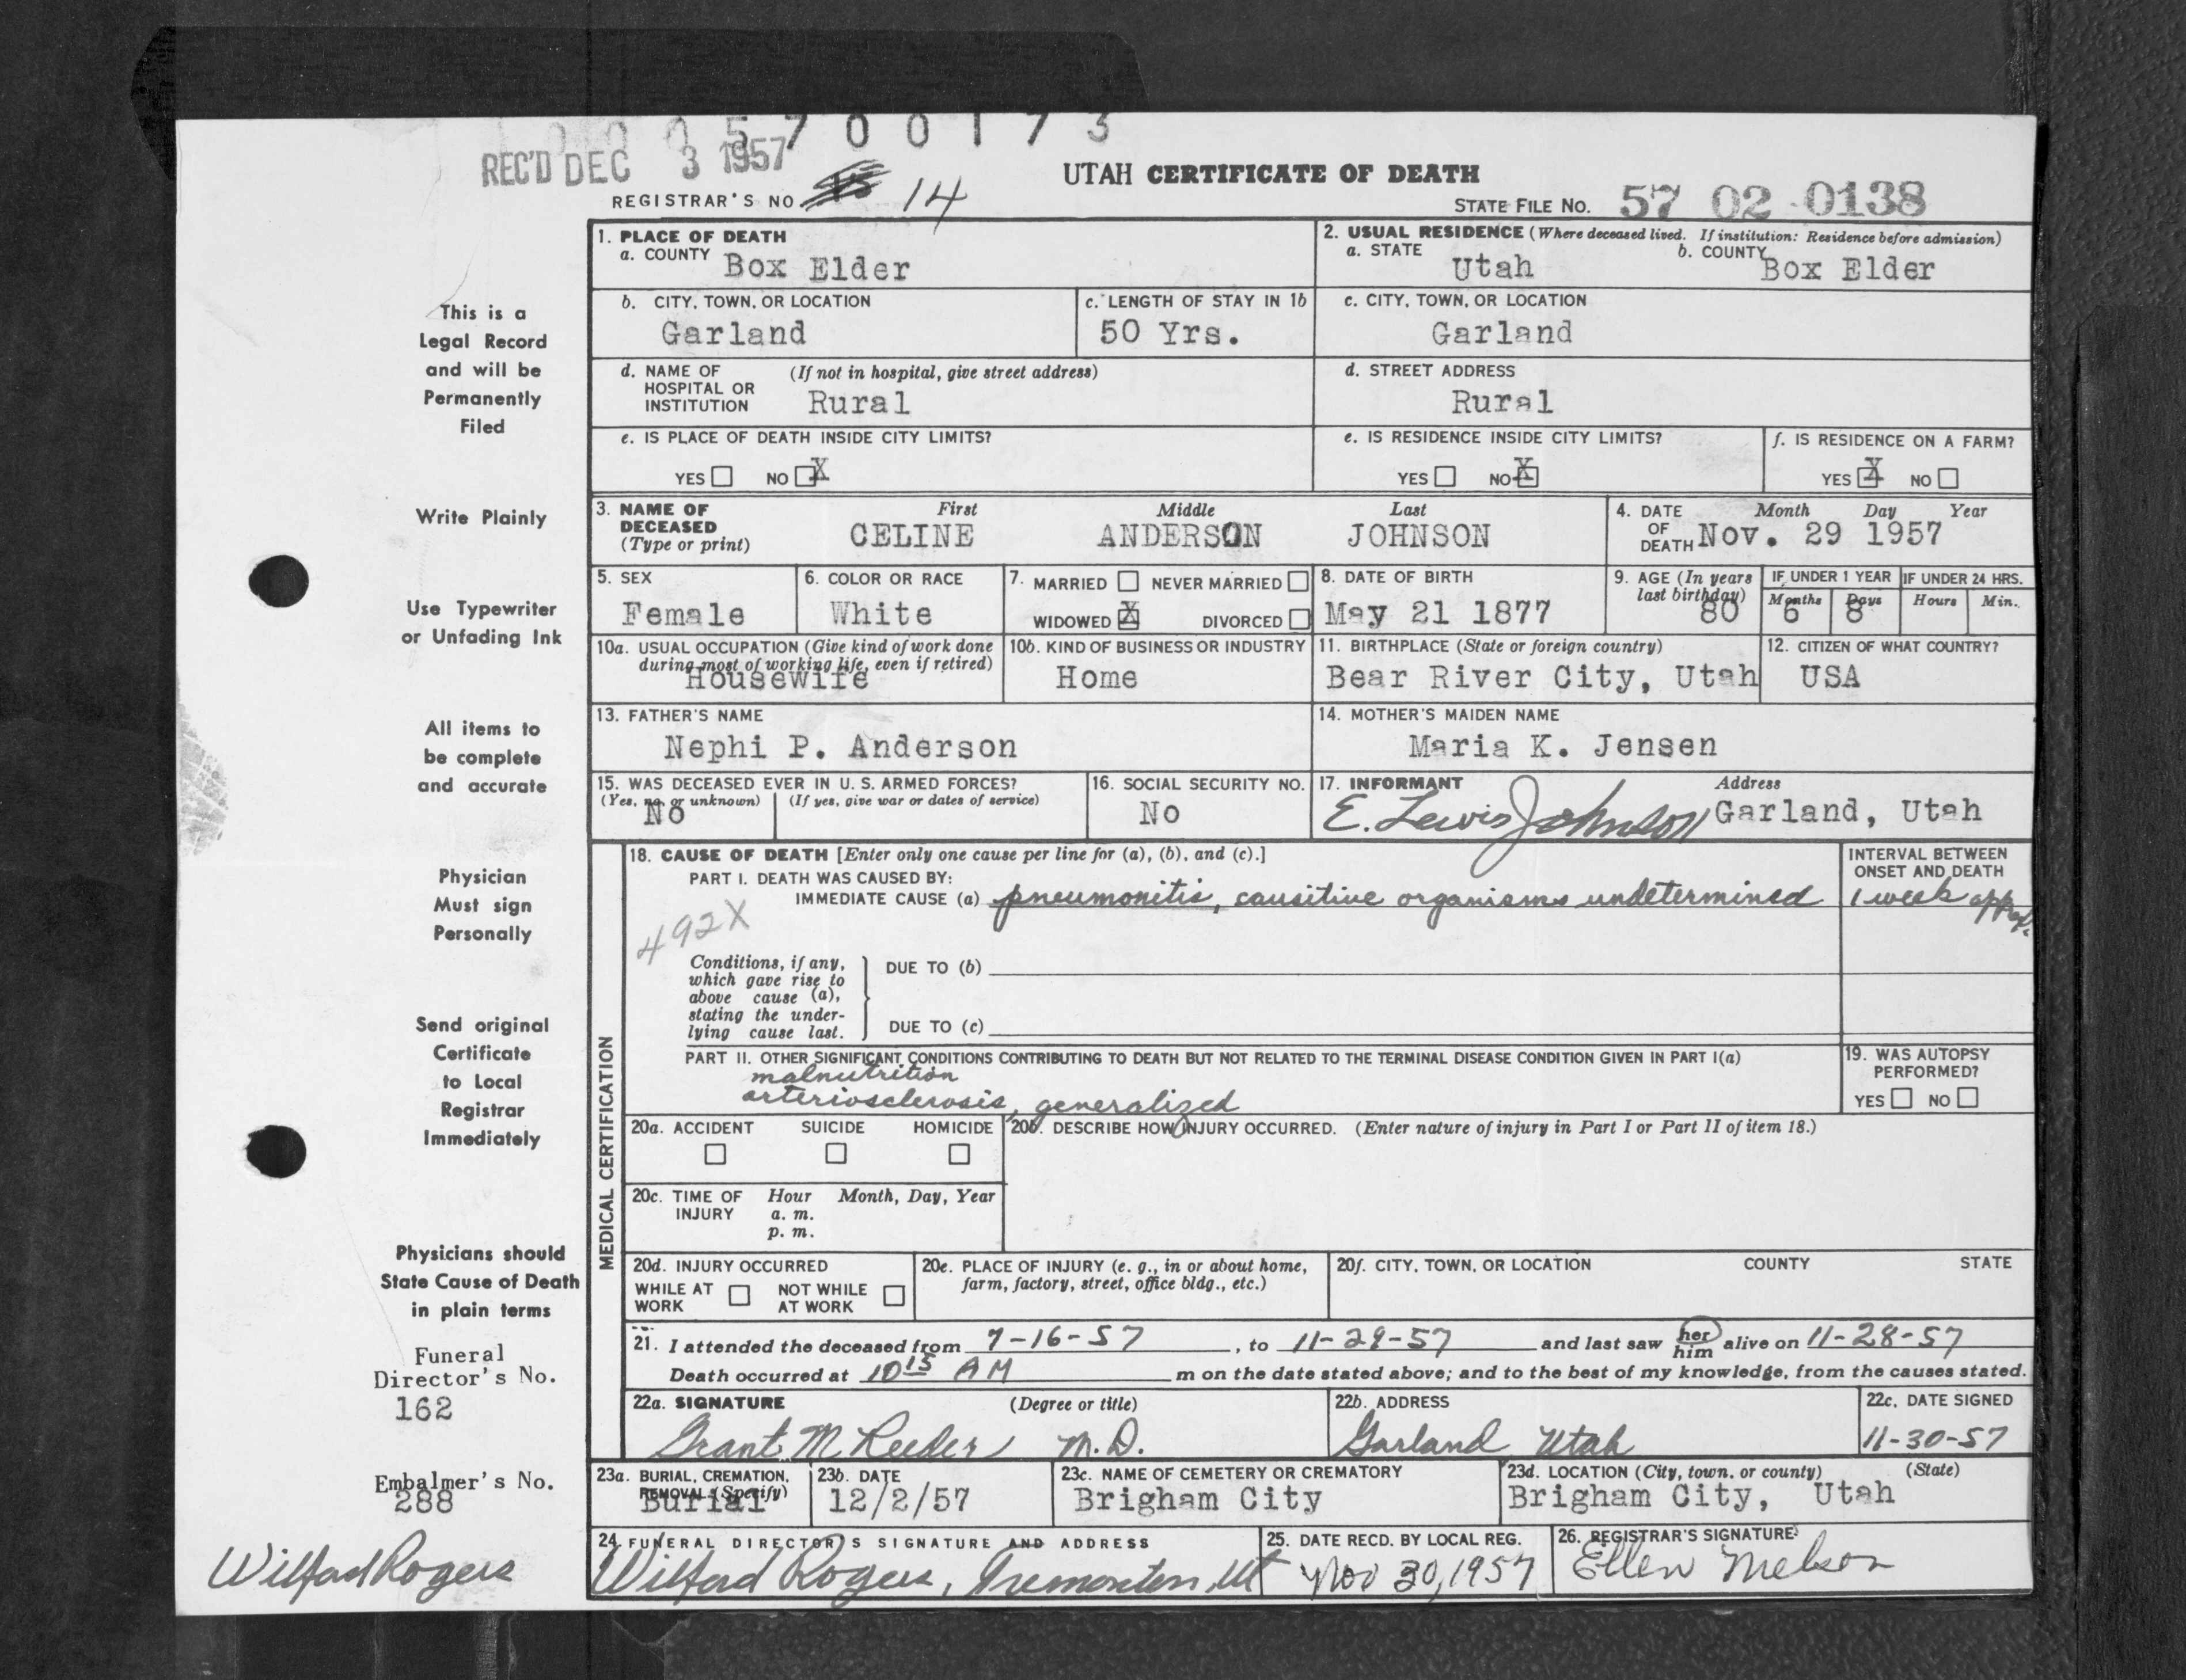 0 0 0 5 7 0 0 1 7 3
REC'D DEC 3 1957
UTAH CERTIFICATE OF DEATH
REGISTRAR'S NO. 14
STATE FILE NO. 57 02 0138
1. PLACE OF DEATH
a. COUNTY Box Elder
2. USUAL RESIDENCE (Where deceased lived. If institution: Residence before admission)
a. STATE Utah b. COUNTY Box Elder
b. CITY, TOWN, OR LOCATION Garland
c. LENGTH OF STAY IN 1b 50 Yrs.
c. CITY, TOWN, OR LOCATION Garland
d. NAME OF HOSPITAL OR INSTITUTION (If not in hospital, give street address) Rural
d. STREET ADDRESS Rural
e. IS PLACE OF DEATH INSIDE CITY LIMITS?
YES NO X
e. IS RESIDENCE INSIDE CITY LIMITS?
YES NO X
f. IS RESIDENCE ON A FARM?
YES X NO
3. NAME OF DECEASED (Type or print)
First Middle Last
CELINE ANDERSON JOHNSON
4. DATE OF DEATH Month Day Year
Nov. 29 1957
5. SEX Female
6. COLOR OR RACE White
7. MARRIED NEVER MARRIED
WIDOWED X DIVORCED
8. DATE OF BIRTH May 21 1877
9. AGE (In years last birthday) 80
IF UNDER 1 YEAR Months 6 Days 8
IF UNDER 24 HRS. Hours Min.
10a. USUAL OCCUPATION (Give kind of work done during most of working life, even if retired) Housewife
10b. KIND OF BUSINESS OR INDUSTRY Home
11. BIRTHPLACE (State or foreign country) Bear River City, Utah
12. CITIZEN OF WHAT COUNTRY? USA
13. FATHER'S NAME Nephi P. Anderson
14. MOTHER'S MAIDEN NAME Maria K. Jensen
15. WAS DECEASED EVER IN U. S. ARMED FORCES?
(Yes, no, or unknown) (If yes, give war or dates of service)
No
16. SOCIAL SECURITY NO. No
17. INFORMANT Address
E. Lewis Johnson Garland, Utah
MEDICAL CERTIFICATION
18. CAUSE OF DEATH [Enter only one cause per line for (a), (b), and (c).]
PART I. DEATH WAS CAUSED BY:
IMMEDIATE CAUSE (a) pneumonitis, causitive organisms undetermined
INTERVAL BETWEEN ONSET AND DEATH
1 week approx.
492X
Conditions, if any, which gave rise to above cause (a), stating the underlying cause last.
DUE TO (b)
DUE TO (c)
PART II. OTHER SIGNIFICANT CONDITIONS CONTRIBUTING TO DEATH BUT NOT RELATED TO THE TERMINAL DISEASE CONDITION GIVEN IN PART I(a)
malnutrition
arteriosclerosis, generalized
19. WAS AUTOPSY PERFORMED?
YES NO
20a. ACCIDENT SUICIDE HOMICIDE
20b. DESCRIBE HOW INJURY OCCURRED. (Enter nature of injury in Part I or Part II of item 18.)
20c. TIME OF INJURY Hour Month, Day, Year
a. m.
p. m.
20d. INJURY OCCURRED
WHILE AT WORK NOT WHILE AT WORK
20e. PLACE OF INJURY (e. g., in or about home, farm, factory, street, office bldg., etc.)
20f. CITY, TOWN, OR LOCATION COUNTY STATE
21. I attended the deceased from 7-16-57, to 11-29-57 and last saw her him alive on 11-28-57
Death occurred at 10 15 AM m on the date stated above; and to the best of my knowledge, from the causes stated.
22a. SIGNATURE (Degree or title)
Grant M Reeder M.D.
22b. ADDRESS Garland Utah
22c. DATE SIGNED 11-30-57
23a. BURIAL, CREMATION, REMOVAL (Specify) Burial
23b. DATE 12/2/57
23c. NAME OF CEMETERY OR CREMATORY Brigham City
23d. LOCATION (City, town, or county) (State)
Brigham City, Utah
24. FUNERAL DIRECTOR'S SIGNATURE AND ADDRESS
Wilford Rogers, Tremonton, Ut
25. DATE RECD. BY LOCAL REG. Nov 30, 1957
26. REGISTRAR'S SIGNATURE Ellen Nelson
This is a
Legal Record
and will be
Permanently
Filed
Write Plainly
Use Typewriter
or Unfading Ink
All items to
be complete
and accurate
Physician
Must sign
Personally
Send original
Certificate
to Local
Registrar
Immediately
Physicians should
State Cause of Death
in plain terms
Funeral
Director's No.
162
Embalmer's No.
288
Wilford Rogers